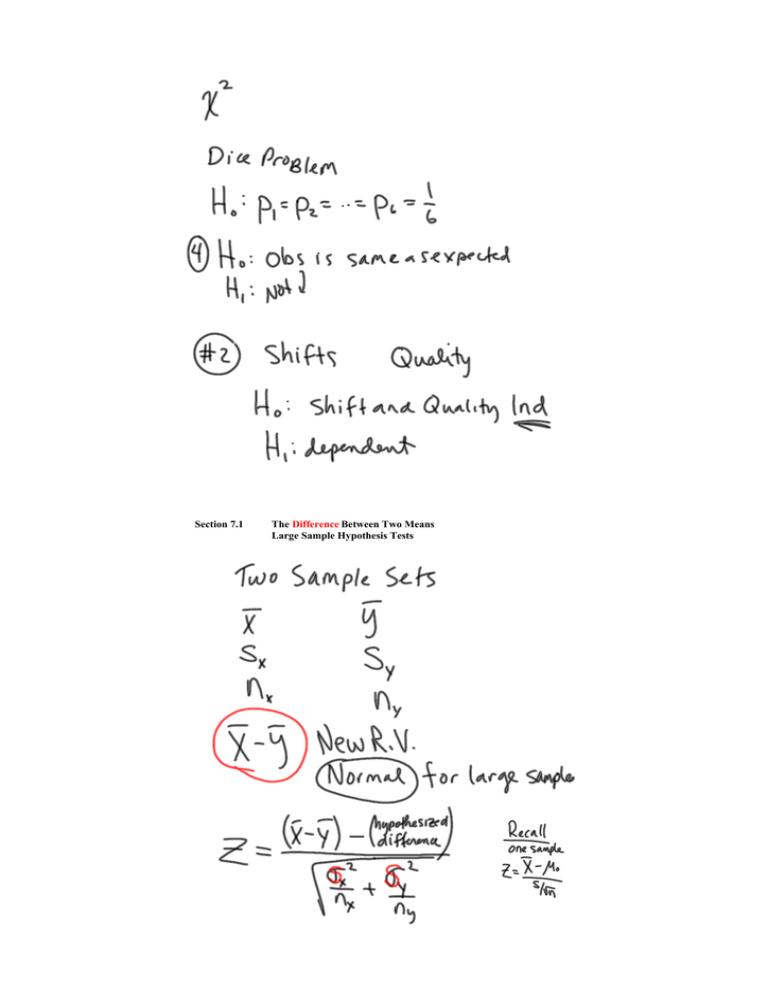 χ²
Dice Problem
H₀: p₁ = p₂ = ··· = p₆ = 1/6
④ H₀: Obs is same as expected
H₁: Not ↓
#2 Shifts Quality
H₀: Shift and Quality Ind
H₁: dependent
Section 7.1 The Difference Between Two Means
Large Sample Hypothesis Tests
Two Sample Sets
x̄ ȳ
Sₓ Sᵧ
nₓ nᵧ
x̄-ȳ New R.V.
Normal for large sample
Z = ((x̄-ȳ) - (hypothesized difference)) / √(σₓ²/nₓ + σᵧ²/nᵧ)
Recall
one sample
Z = (x̄-μ₀)/(s/√n)